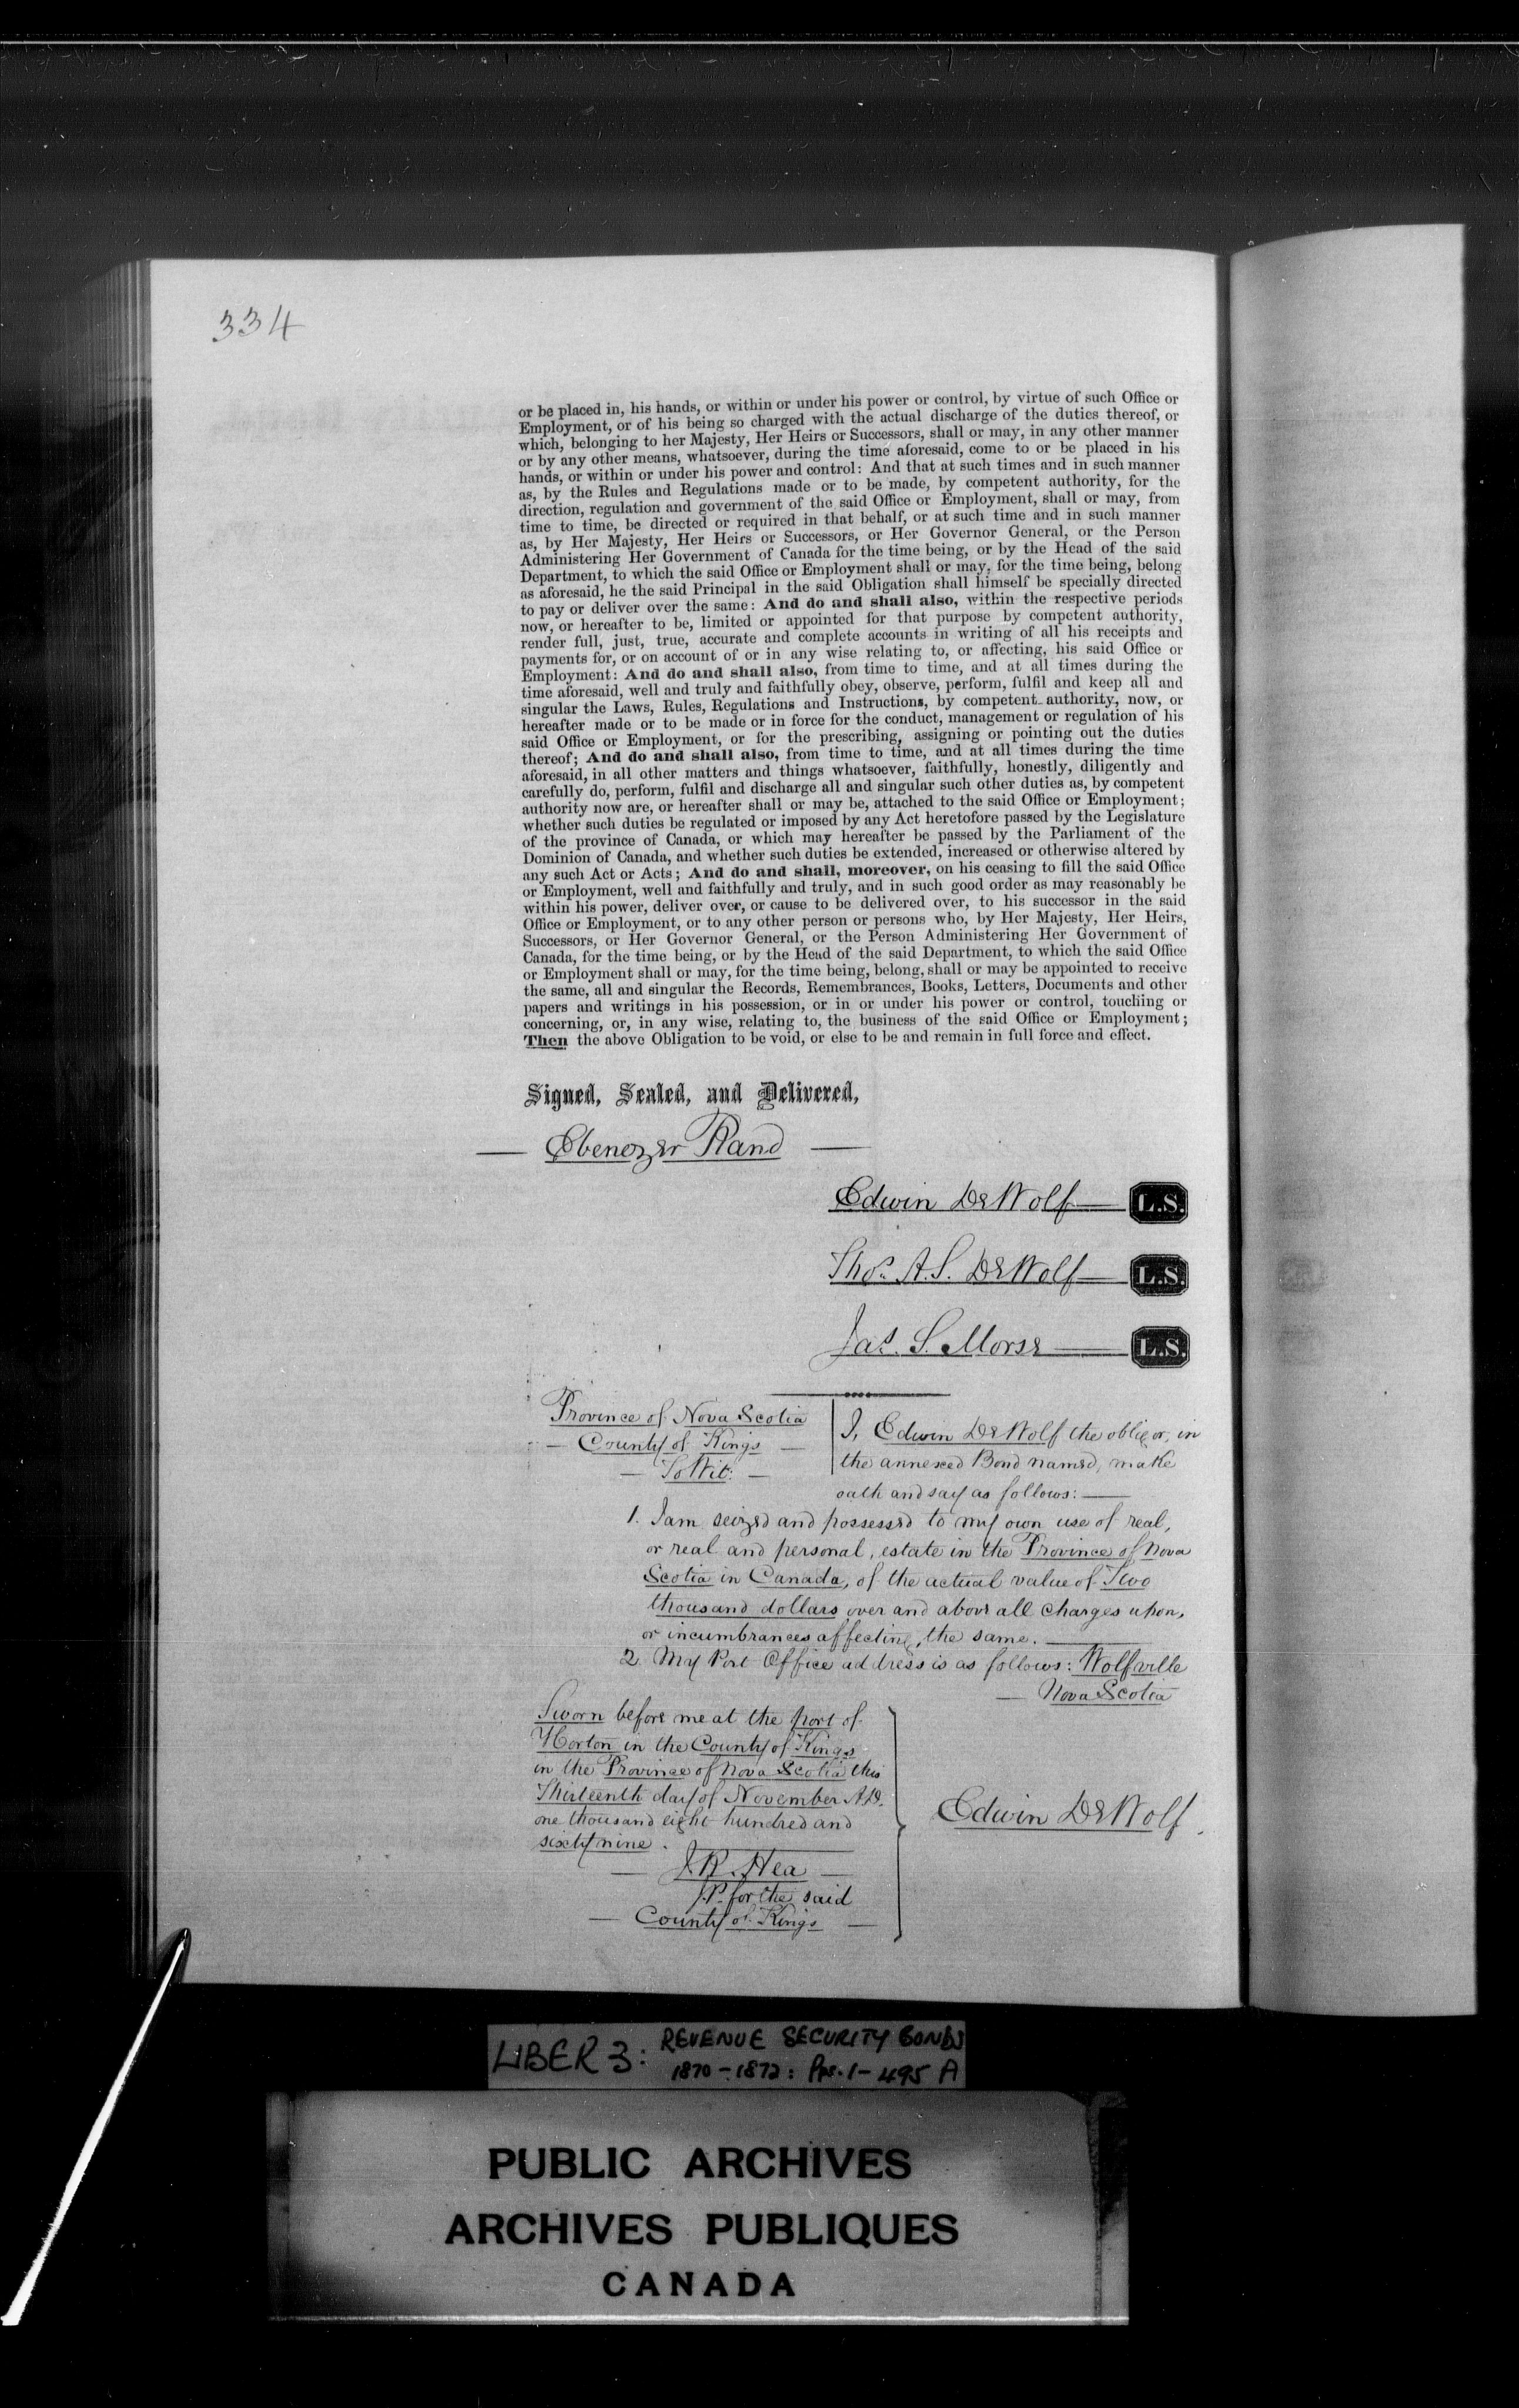 334
or be placed in, his hands, or within or under his power or control, by virtue of such Office or
Employment, or of his being so charged with the actual discharge of the duties thereof, or
which, belonging to her Majesty, Her Heirs or Successors, shall or may, in any other manner
or by any other means, whatsoever, during the time aforesaid, come to or be placed in his
hands, or within or under his power and control: And that at such times and in such manner
as, by the Rules and Regulations made or to be made, by competent authority, for the
direction, regulation and government of the said Office or Employment, shall or may, from
time to time, be directed or required in that behalf, or at such time and in such manner
as, by Her Majesty, Her Heirs or Successors, or Her Governor General, or the Person
Administering Her Government of Canada for the time being, or by the Head of the said
Department, to which the said Office or Employment shall or may, for the time being, belong
as aforesaid, he the said Principal in the said Obligation shall himself be specially directed
to pay or deliver over the same: And do and shall also, within the respective periods
now, or hereafter to be, limited or appointed for that purpose by competent authority,
render full, just, true, accurate and complete accounts in writing of all his receipts and
payments for, or on account of or in any wise relating to, or affecting, his said Office or
Employment: And do and shall also, from time to time, and at all times during the
time aforesaid, well and truly and faithfully obey, observe, perform, fulfil and keep all and
singular the Laws, Rules, Regulations and Instructions, by competent authority, now, or
hereafter made or to be made or in force for the conduct, management or regulation of his
said Office or Employment, or for the prescribing, assigning or pointing out the duties
thereof; And do and shall also, from time to time, and at all times during the time
aforesaid, in all other matters and things whatsoever, faithfully, honestly, diligently and
carefully do, perform, fulfil and discharge all and singular such other duties as, by competent
authority now are, or hereafter shall or may be, attached to the said Office or Employment;
whether such duties be regulated or imposed by any Act heretofore passed by the Legislature
of the province of Canada, or which may hereafter be passed by the Parliament of the
Dominion of Canada, and whether such duties be extended, increased or otherwise altered by
any such Act or Acts; And do and shall, moreover, on his ceasing to fill the said Office
or Employment, well and faithfully and truly, and in such good order as may reasonably be
within his power, deliver over, or cause to be delivered over, to his successor in the said
Office or Employment, or to any other person or persons who, by Her Majesty, Her Heirs,
Successors, or Her Governor General, or the Person Administering Her Government of
Canada, for the time being, or by the Head of the said Department, to which the said Office
or Employment shall or may, for the time being, belong, shall or may be appointed to receive
the same, all and singular the Records, Remembrances, Books, Letters, Documents and other
papers and writings in his possession, or in or under his power or control, touching or
concerning, or, in any wise, relating to, the business of the said Office or Employment;
Then the above Obligation to be void, or else to be and remain in full force and effect.
Signed, Sealed, and Delivered,
— Ebenezer Rand —
Edwin DeWolf — L.S.
Thos. A.S. DeWolf — L.S.
Jas. S. Morse — L.S.
Province of Nova Scotia
— County of Kings —
— To Wit: —
I, Edwin DeWolf the obligor, in
the annexed Bond named, make
oath and say as follows: —
1. I am seized and possessed to my own use of real,
or real and personal, estate in the Province of Nova
Scotia in Canada, of the actual value of Two
thousand dollars over and above all charges upon,
or incumbrances affecting, the same. —
2. My Post Office address is as follows: Wolfville
— Nova Scotia
Sworn before me at the port of
Horton in the County of Kings
in the Province of Nova Scotia this
Thirteenth day of November A.D.
one thousand eight hundred and
sixty nine.
— J.R. Hea —
J.P. for the said
— County of Kings —
Edwin DeWolf.
LIBER 3: REVENUE SECURITY BONDS
1870-1872: Pps. 1-495 A
PUBLIC ARCHIVES
ARCHIVES PUBLIQUES
CANADA